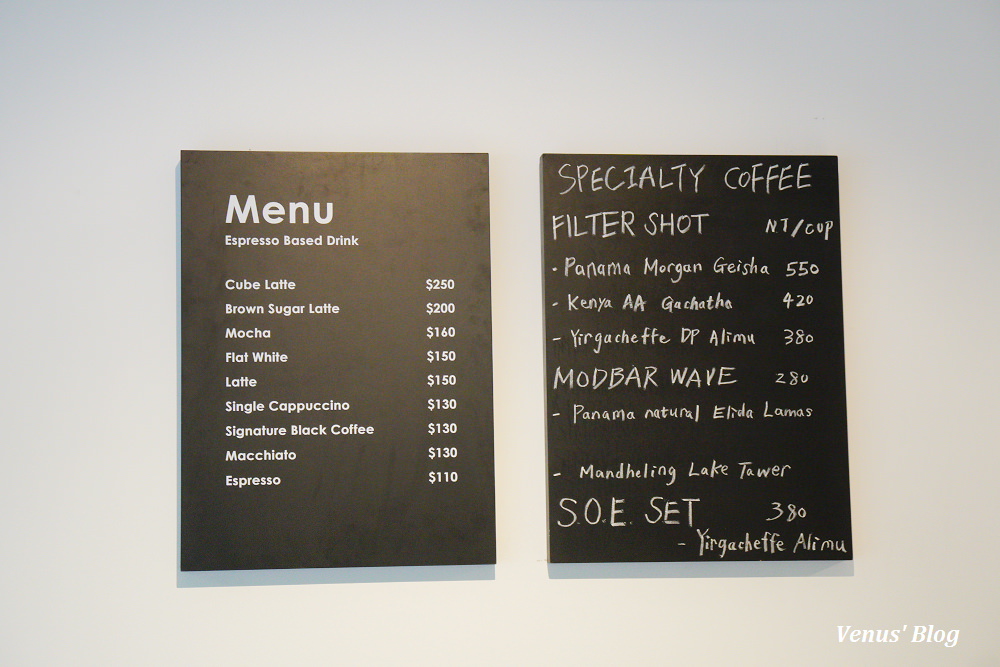 Menu
Espresso Based Drink
Cube Latte $250
Brown Sugar Latte $200
Mocha $160
Flat White $150
Latte $150
Single Cappuccino $130
Signature Black Coffee $130
Macchiato $130
Espresso $110
SPECIALTY COFFEE
FILTER SHOT NT/CUP
· Panama Morgan Geisha 550
- Kenya AA Gachatha 420
- Yirgacheffe DP Alimu 380
MODBAR WAVE 280
- Panama natural Elida Lamas
- Mandheling Lake Tawer
S.O.E. SET 380
- Yirgacheffe Alimu
Venus' Blog